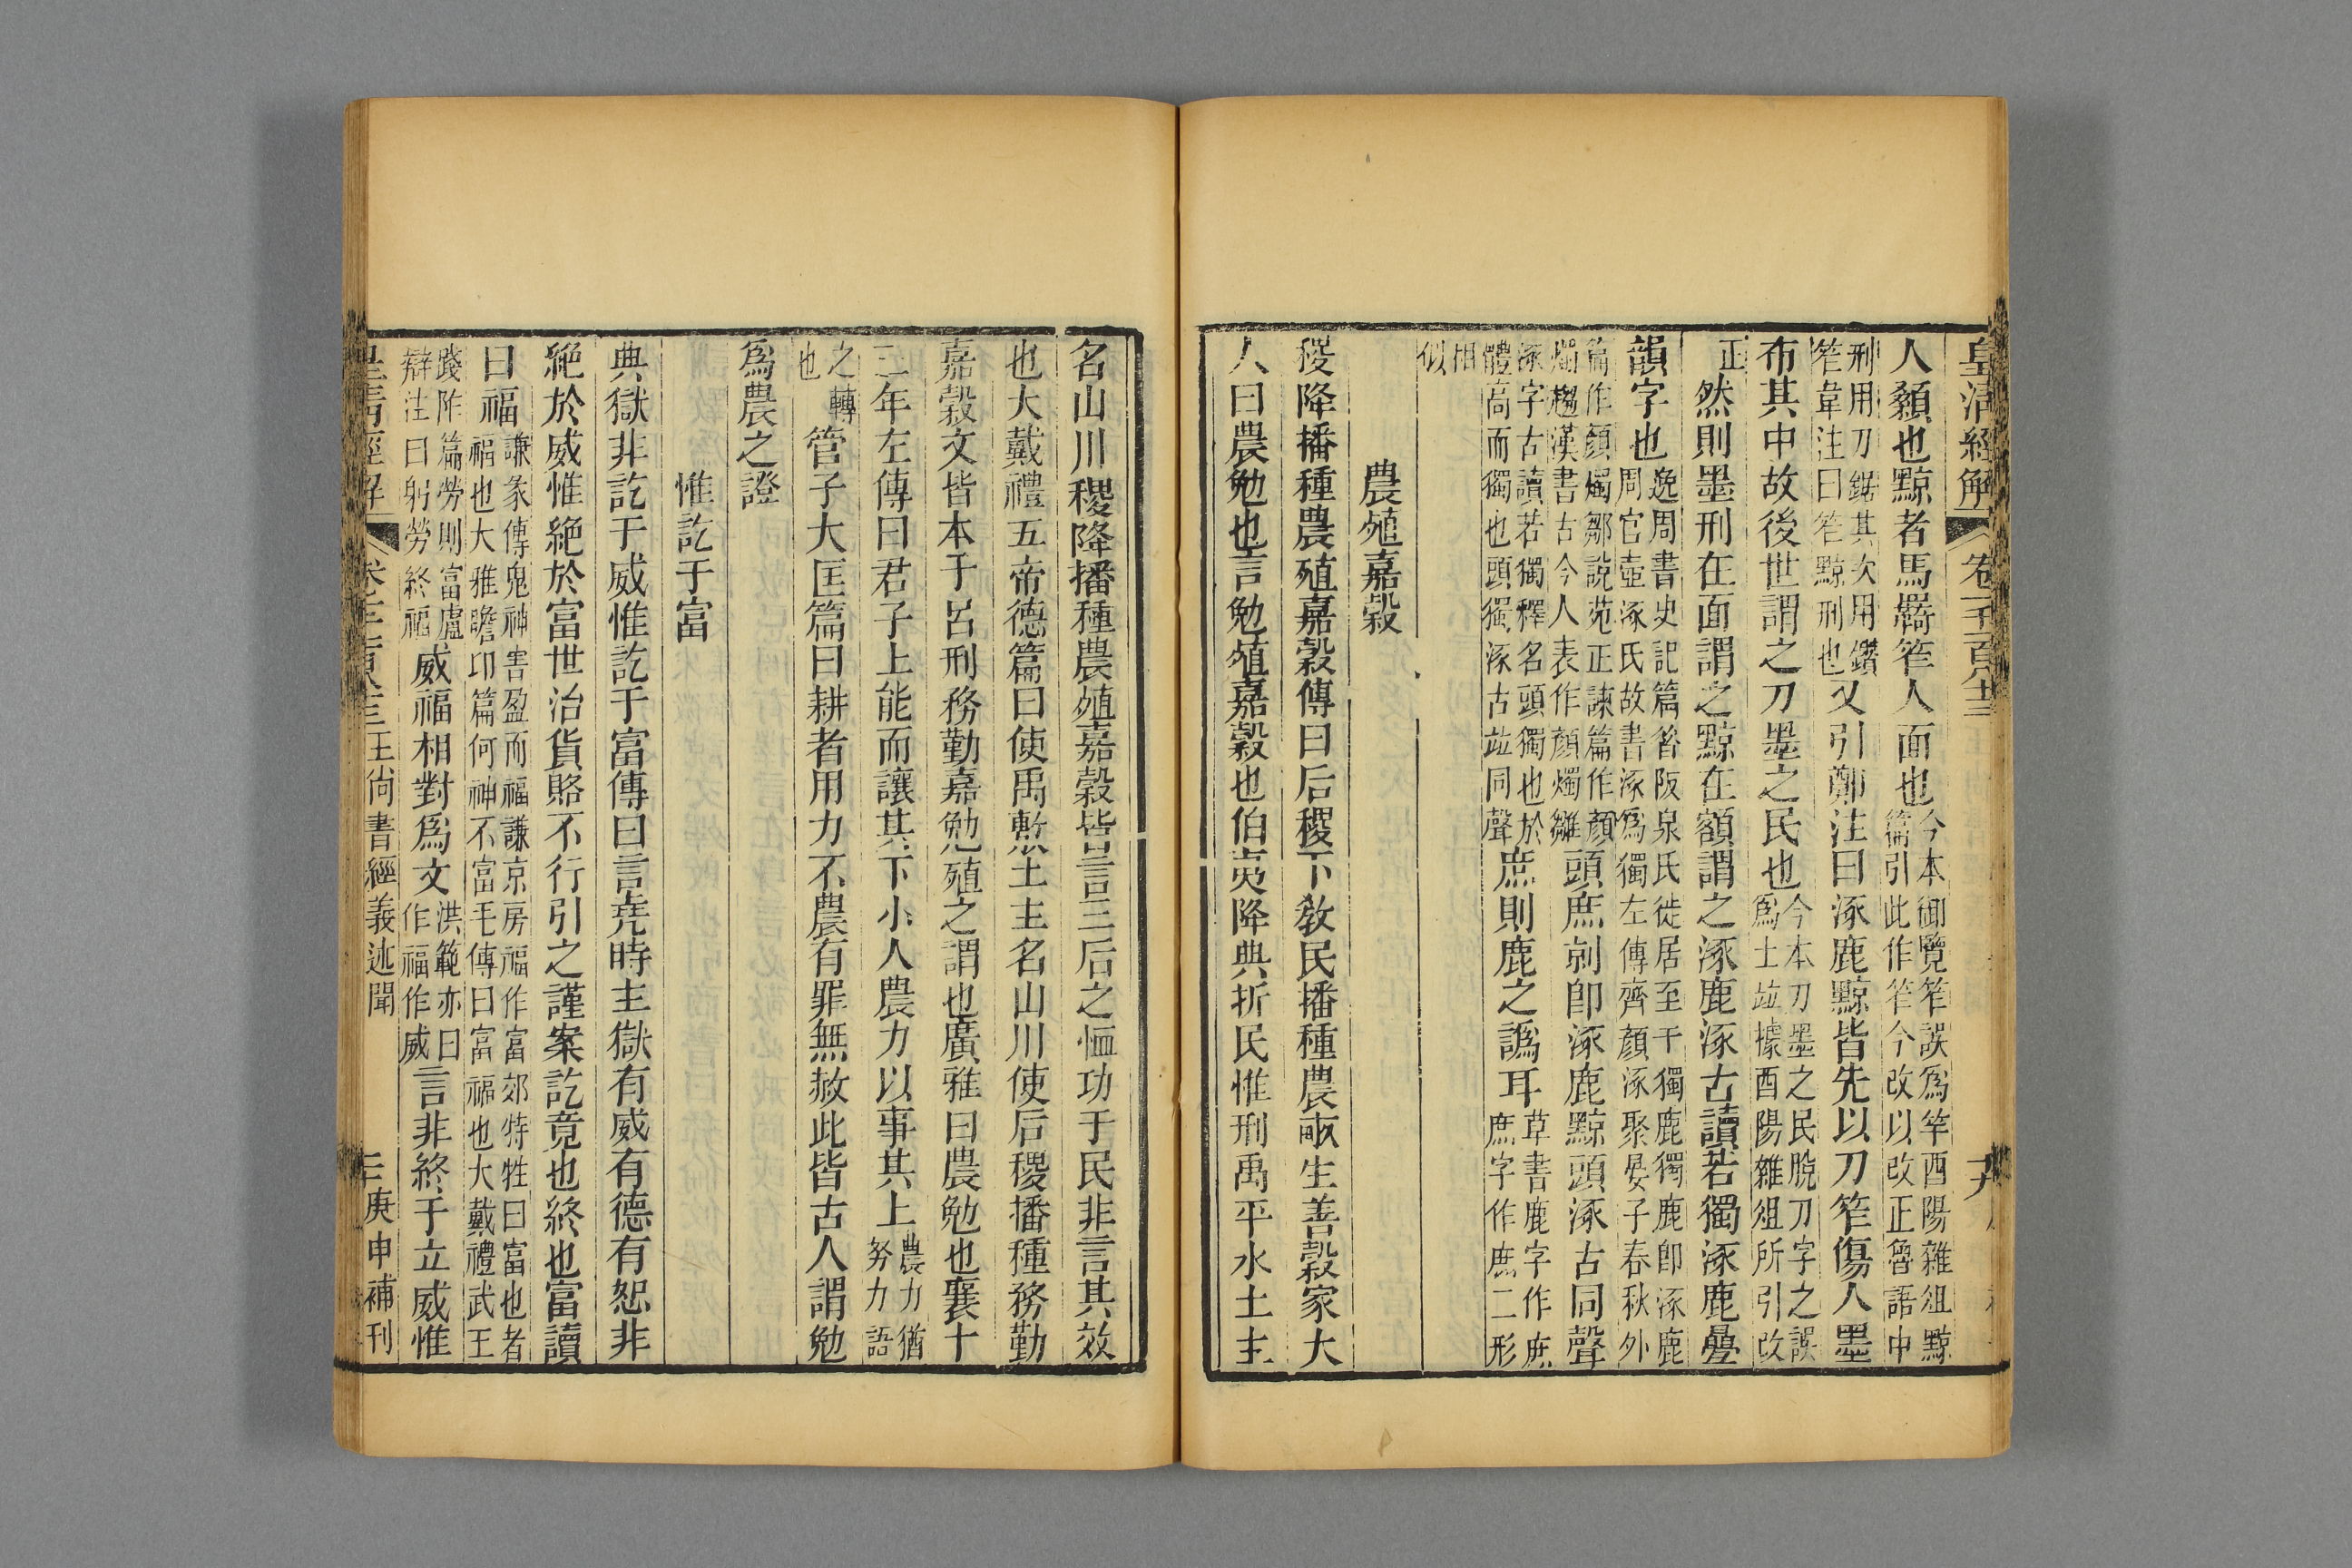 皇清經解 卷一千一百八十三 十九
人顙也黥者馬羈笮人面也今本御覽笮誤爲竿酉陽雜俎黥篇引此作笮今改以改正魯語中
刑用刀鋸其次用鑽笮韋注曰笮黥刑也又引鄭注曰涿鹿黥皆先以刀笮傷人墨
布其中故後世謂之刀墨之民也今本刀墨之民脫刀字之誤爲士竝據酉陽雜俎所引改
正然則墨刑在面謂之黥在額謂之涿鹿涿古讀若獨涿鹿疊
韻字也逸周書史記篇昝阪泉氏徙居至于獨鹿獨鹿卽涿鹿周官壺涿氏故書涿爲獨左傳齊顏涿聚晏子春秋外
篇作顏燭鄒說苑正諫篇作顏燭趨漢書古今人表作顏燭雛頭庶剠卽涿鹿黥頭涿古同聲
涿字古讀若獨釋名頭獨也於體高而獨也頭獨涿古竝同聲庶則鹿之譌耳草書鹿字作庶庶字作鹿二形
相似
農殖嘉穀
稷降播種農殖嘉穀傳曰后稷下敎民播種農畝生善穀家大
人曰農勉也言勉殖嘉穀也伯夷降典折民惟刑禹平水土主
名山川稷降播種農殖嘉穀皆言三后之恤功于民非言其效
也大戴禮五帝德篇曰使禹敷土主名山川使后稷播種務勤
嘉穀文皆本于呂刑務勤嘉勉殖之謂也廣雅曰農勉也襄十
三年左傳曰君子上能而讓其下小人農力以事其上農力猶努力語
之轉也管子大匡篇曰耕者用力不農有罪無赦此皆古人謂勉
爲農之證
惟訖于富
典獄非訖于威惟訖于富傳曰言堯時主獄有威有德有恕非
絕於威惟絕於富世治貨賂不行引之謹案訖竟也終也富讀
曰福謙彖傳鬼神害盈而福謙京房福作富郊特牲曰富也者福也大雅瞻卬篇何神不富毛傳曰富福也大戴禮武王
踐阼篇勞則富盧辯注曰躬勞終福威福相對爲文洪範亦曰作福作威言非終于立威惟
皇清經解 卷一千一百八十三 王尙書經義述聞 二十 庚申補刊